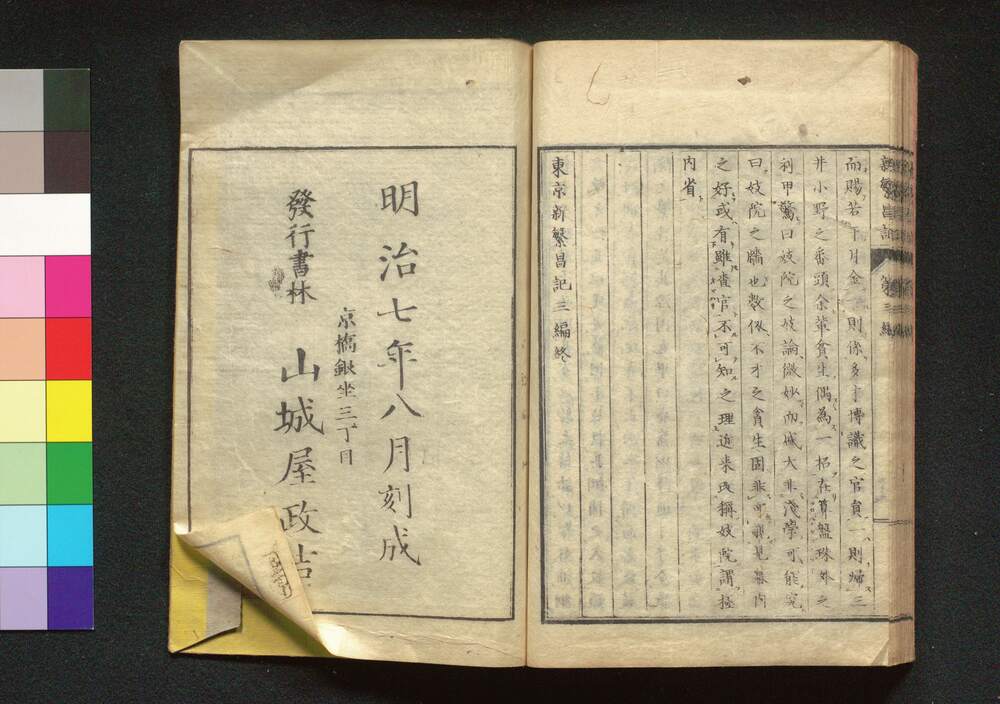 而賜若干月金
則係多才博識之官員一則婦三
井小野之番頭余輩貧生偶為一招在算盤珠外之
利甲驚曰妓院之妓論微妙而城大非淺學可能究
曰妓院之
也
不才之貧生固非可
之好或有雖貴官不可知之理近來改稱妓院謂
内省
東京新繁昌記三編終
明治七年八月刻成
京橋銀坐三丁目
發行書林
山城屋政吉